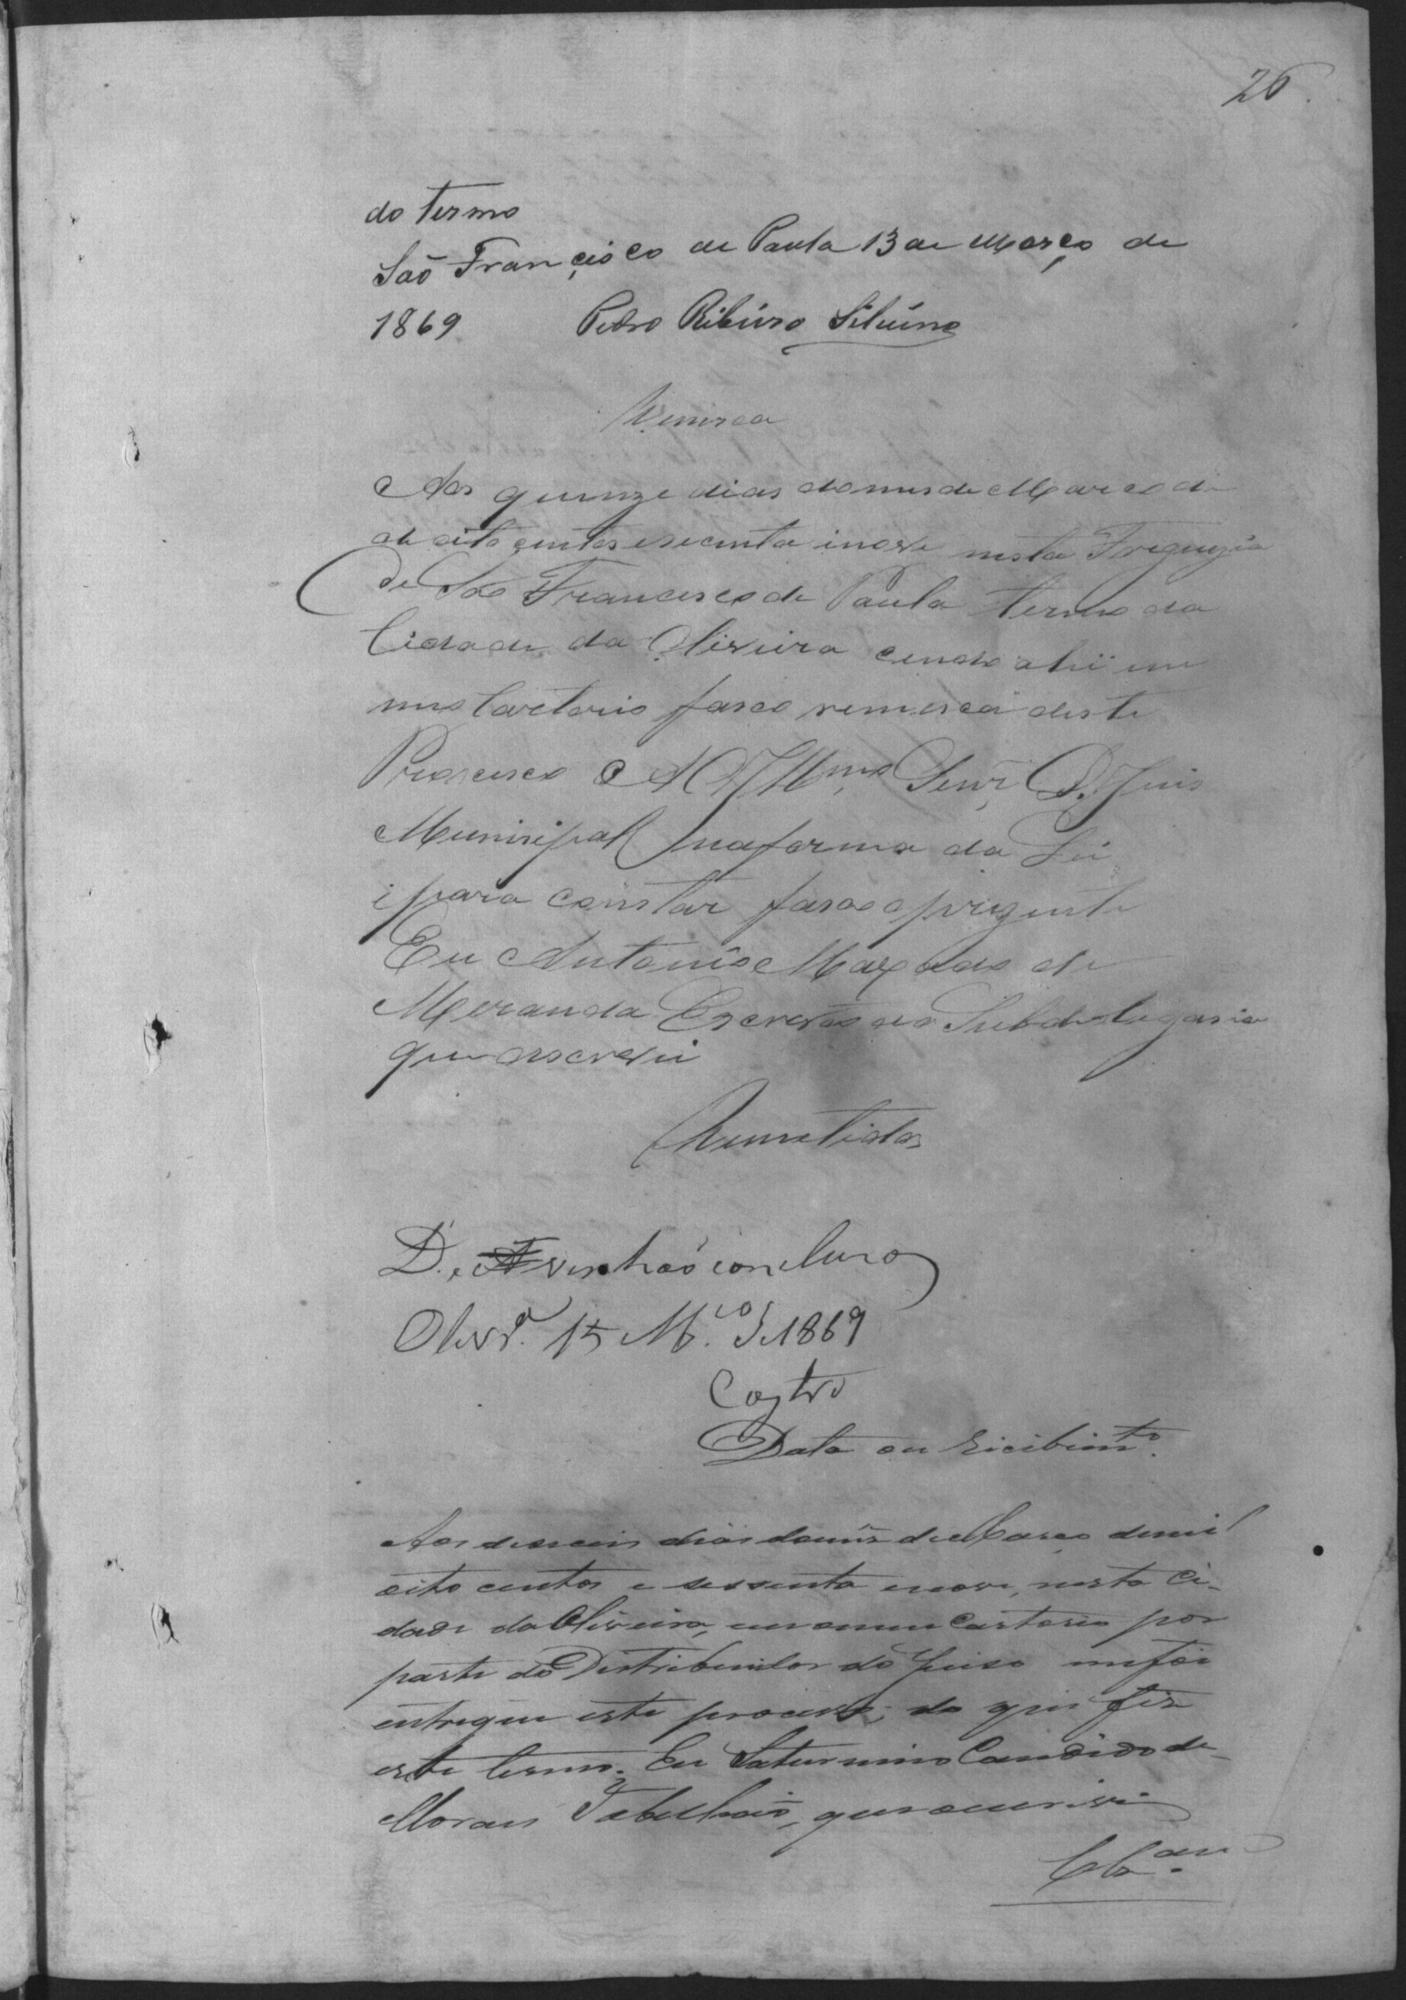 26
do termo
São Francisco de Paula 13 de Março de
1869 Pedro Ribeiro Silvino
Remeca
Aos quinze dias do mes de Marco de
oito centos esecenta inove nesta Freguezia
de São Francisco de Paula termo da
Cidade da Oliveira cendo ahi em
meo Cartorio faseo remesca deste
Proscesco Ao Illmo Senr. D. Juis
Munisipal na forma da Lei
ipara constar faseo o prezente
Eu Antonio Maxado de
Meranda Escrivão da Subdelegasia
que o escrevi
Remetidos
D. e A venhão conclusos
Olivrª 15 M.ço de 1869
Castro
Data ou recibimto.
Aos deseseis dias do mês de Março de mil
oito centos e sessenta enove, nesta Ci-
dade da Oliveira, em o meu Cartorio por
parte do Distribuidor do Juiso me foi
entregue este processo; do que fiz
este termo. Eu Saturnino Candido de
Moraes Tabelhião, que o escrevi
Clsam